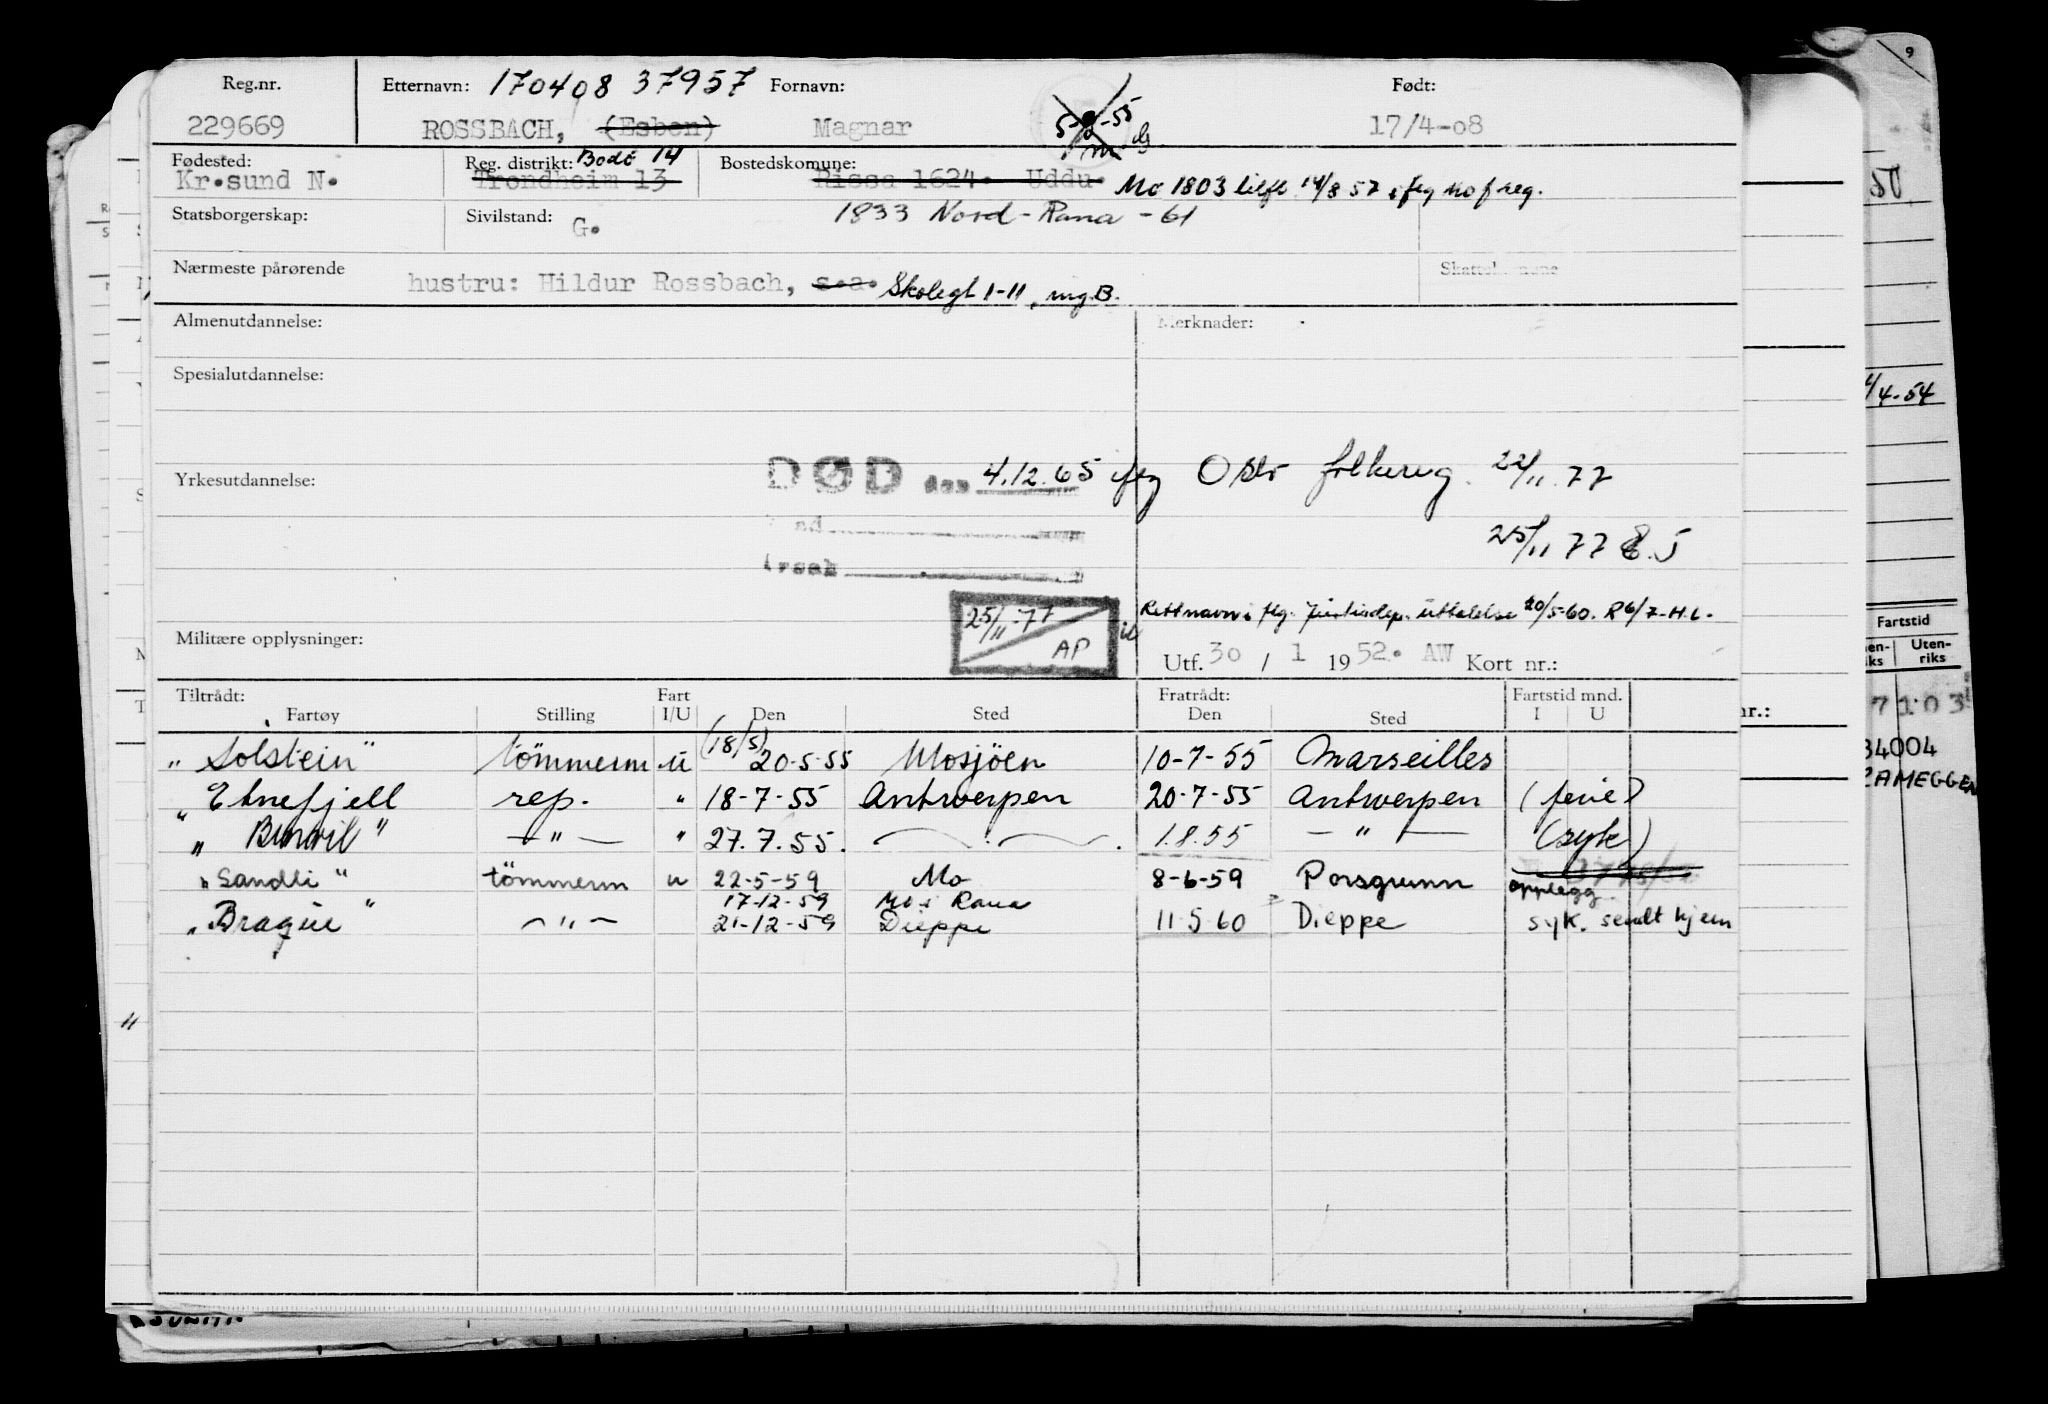 Reg.nr. Etternavn: 170408 37957 Fornavn: Født:
229669 ROSSBACH, (Esben) Magnar 5-9-55 17/4-08
Fødested: Reg. distrikt: Bodö 14 Bostedskomune:
Kr.sund N. Trondheim 13 Rissa 1624. Uddu. Mo 1803 14/8 57
Statsborgerskap: Sivilstand: G. 1833 Nord-Rana -61
Nærmeste pårørende hustru: Hildur Rossbach, s.a. Skolegt 1-11, Skattekommune
Almenutdannelse: Merknader:
Spesialutdannelse:
Yrkesutdannelse: DØD den 4.12.65 Oslo folkereg. 22/11 77
25/11 77
Årsak
25/11-77
AP
Rettnavn i flg. Justisdep. uttalelse 20/5-60. R 6/7-H.L.
Militære opplysninger: Utf. 30 / 1 1952. AW Kort nr.:
Tiltrådt: Fart Fratrådt: Fartstid mnd.
Fartøy Stilling I/U Den Sted Den Sted I U
"Solstein" tömmerm. u (18/5) 20-5-55 Mosjöen 10-7-55 Marseilles
"Etnefjell rep. " 18-7-55 Antwerpen 20-7-55 Antwerpen (ferie)
" " — " — " 27.7.55. 1.8.55 — " — (syk)
"Sandli" tömmerm u 22-5-59 Mo 8-6-59 Porsgrunn opplegg
17-12-59 Mo i Rana
"Brague" — " — 21-12-59 Dieppe 11-5-60 Dieppe syk. sendt hjem
9
50
4-54
Fartstid
Uten-
riks
7103
34004
nr.: